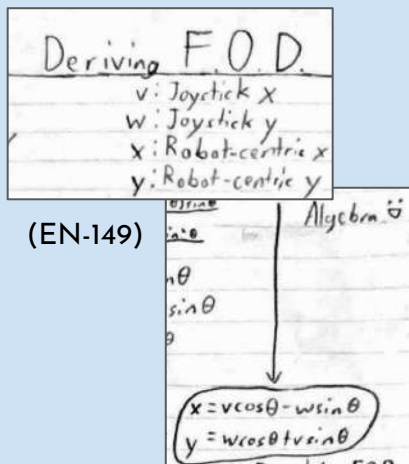 Deriving F.O.D.
v: Joystick x
w: Joystick y
x: Robot-centric x
y: Robot-centric y
(EN-149)
Algebra ü
sinθ
x = vcosθ - wsinθ
y = wcosθ + vsinθ